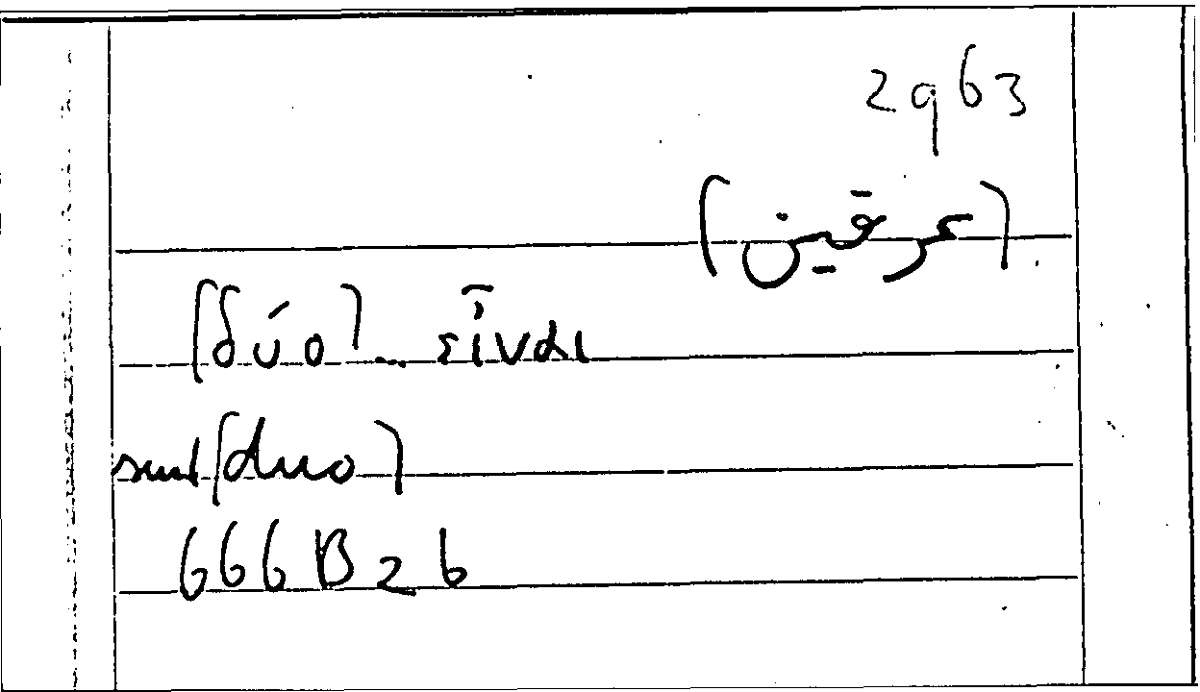 2963
(عرقين)
[δύο]... εἶναι
sunt [duo]
666B26